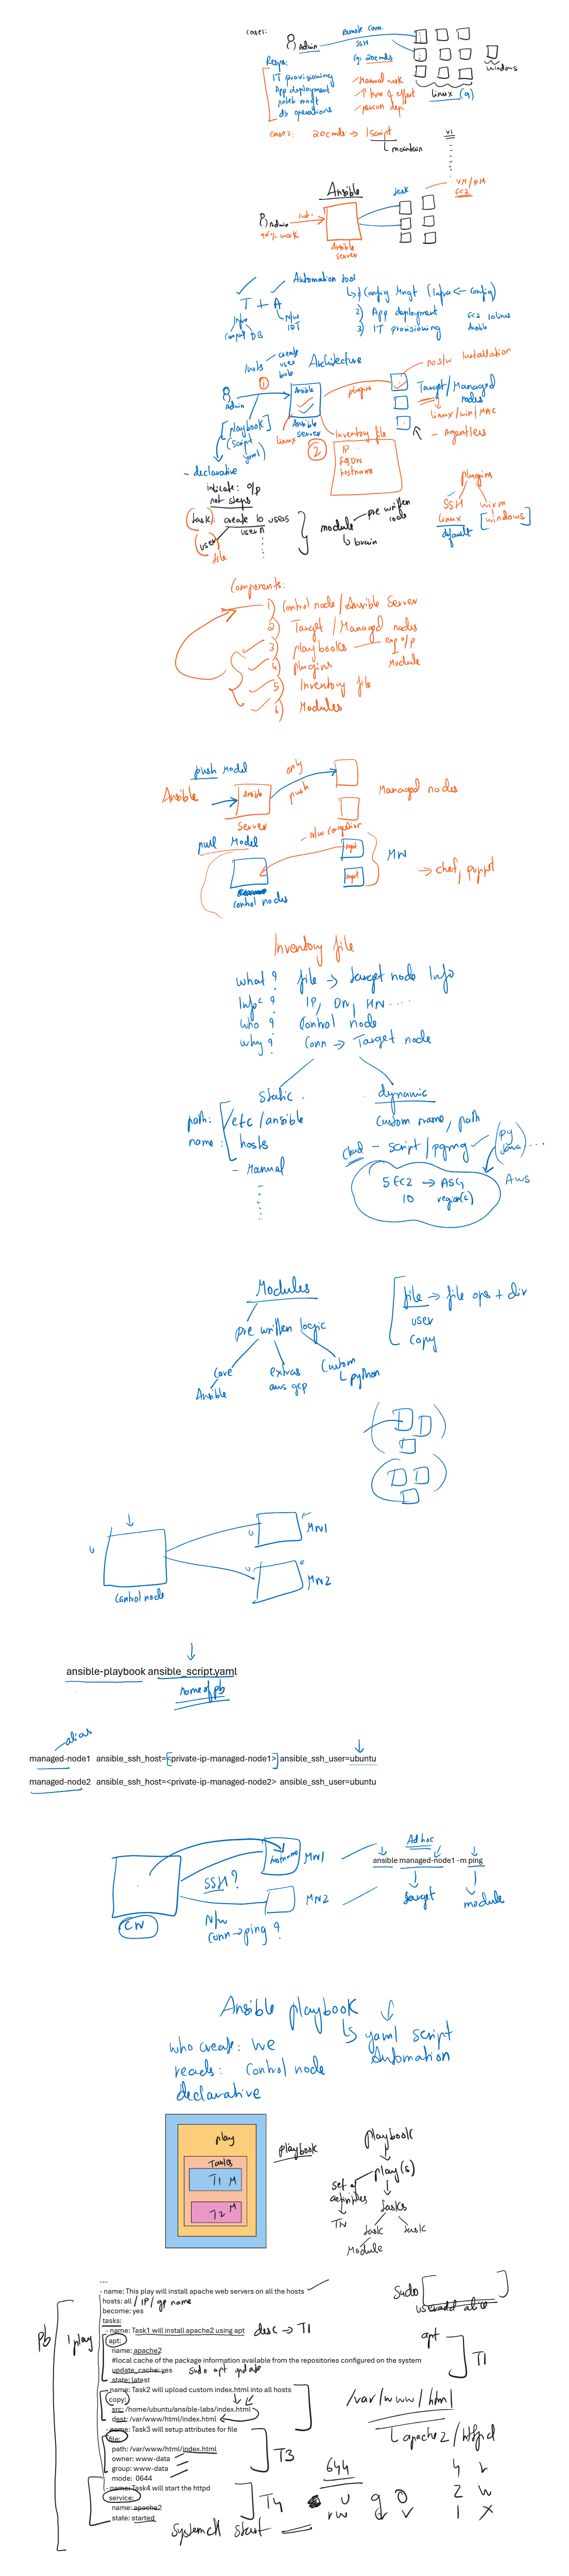 case1:
Admin
Remote Conn.
SSH
eg: 20cmds
windows
Linux (9)
Resps:
IT provisioning
App deployment
patch mgmt
db operations
Manual work
↑ time & effort
case2: 20cmds → 1script
maintain
VI
Ansible
task
VM/PM
EC2
Admin
Inst.
Ansible
server
Automation tool
T + A
Infra
DB
N/w
1) Config Mngt (Infra ← config)
2) App deployment
3) IT provisioning
Architecture
Insts
create
user
bob
1
Admin
Ansible
Ansible
server
Linux
plugins
no s/w Installation
Target/Managed
nodes
Linux/win/MAC
- Agentless
[playbook]
(script
yaml)
2
Inventory file
IP
FQDN
hostname
- declarative
indicate: o/p
not steps
task: create 10 users
user
file
module
pre written
code
brain
plugins
SSH
winrm
Linux
default
[windows]
Components:
1) Control node/Ansible Server
2) Target/Managed nodes
3) playbooks
exp o/p
Module
4) plugins
5) Inventory file
6) Modules
push Model
Ansible
Ansible
Server
only
push
Managed nodes
pull Model
N/w congestion
agent
agent
MN
control nodes
→ chef, puppet
Inventory file
what? file → target node Info
Info? IP, DN, HN ....
who? Control node
why? Conn → Target node
static
dynamic
path: /etc/ansible
name: hosts
- Manual
Custom name, path
cloud - script/pgmg
(py
java) ...
5 EC2 → ASG
10 region(s)
AWS
Modules
pre written logic
Core
Ansible
extras
aws gcp
Custom
python
file → file ops + dir
user
copy
U
control node
U
MN1
U
MN2
ansible-playbook ansible_script.yaml
name of pb
alias
managed-node1 ansible_ssh_host=<private-ip-managed-node1> ansible_ssh_user=ubuntu
managed-node2 ansible_ssh_host=<private-ip-managed-node2> ansible_ssh_user=ubuntu
CN
SSH?
hostname
MN1
MN2
N/w
Conn → ping?
Adhoc
ansible managed-node1 -m ping
target
module
Ansible playbook
yaml script
Automation
who create: we
reads: Control node
declarative
play
Tasks
T1 M
T2 M
playbook
playbook
play(s)
set of
activities
TN
tasks
task
task
Module
---
- name: This play will install apache web servers on all the hosts
hosts: all / IP / gp name
become: yes
tasks:
- name: Task1 will install apache2 using apt
desc → T1
apt:
name: apache2
#local cache of the package information available from the repositories configured on the system
update_cache: yes
sudo apt update
state: latest
- name: Task2 will upload custom index.html into all hosts
copy:
src: /home/ubuntu/ansible-labs/index.html
dest: /var/www/html/index.html
- name: Task3 will setup attributes for file
file:
path: /var/www/html/index.html
owner: www-data
group: www-data
mode: 0644
- name: Task4 will start the httpd
service:
name: apache2
state: started
pb
1 play
sudo
useradd alice
apt
T1
/var/www/html
apache2/httpd
T3
T4
systemctl start
644
u g o
rw r r
4 r
2 w
1 x